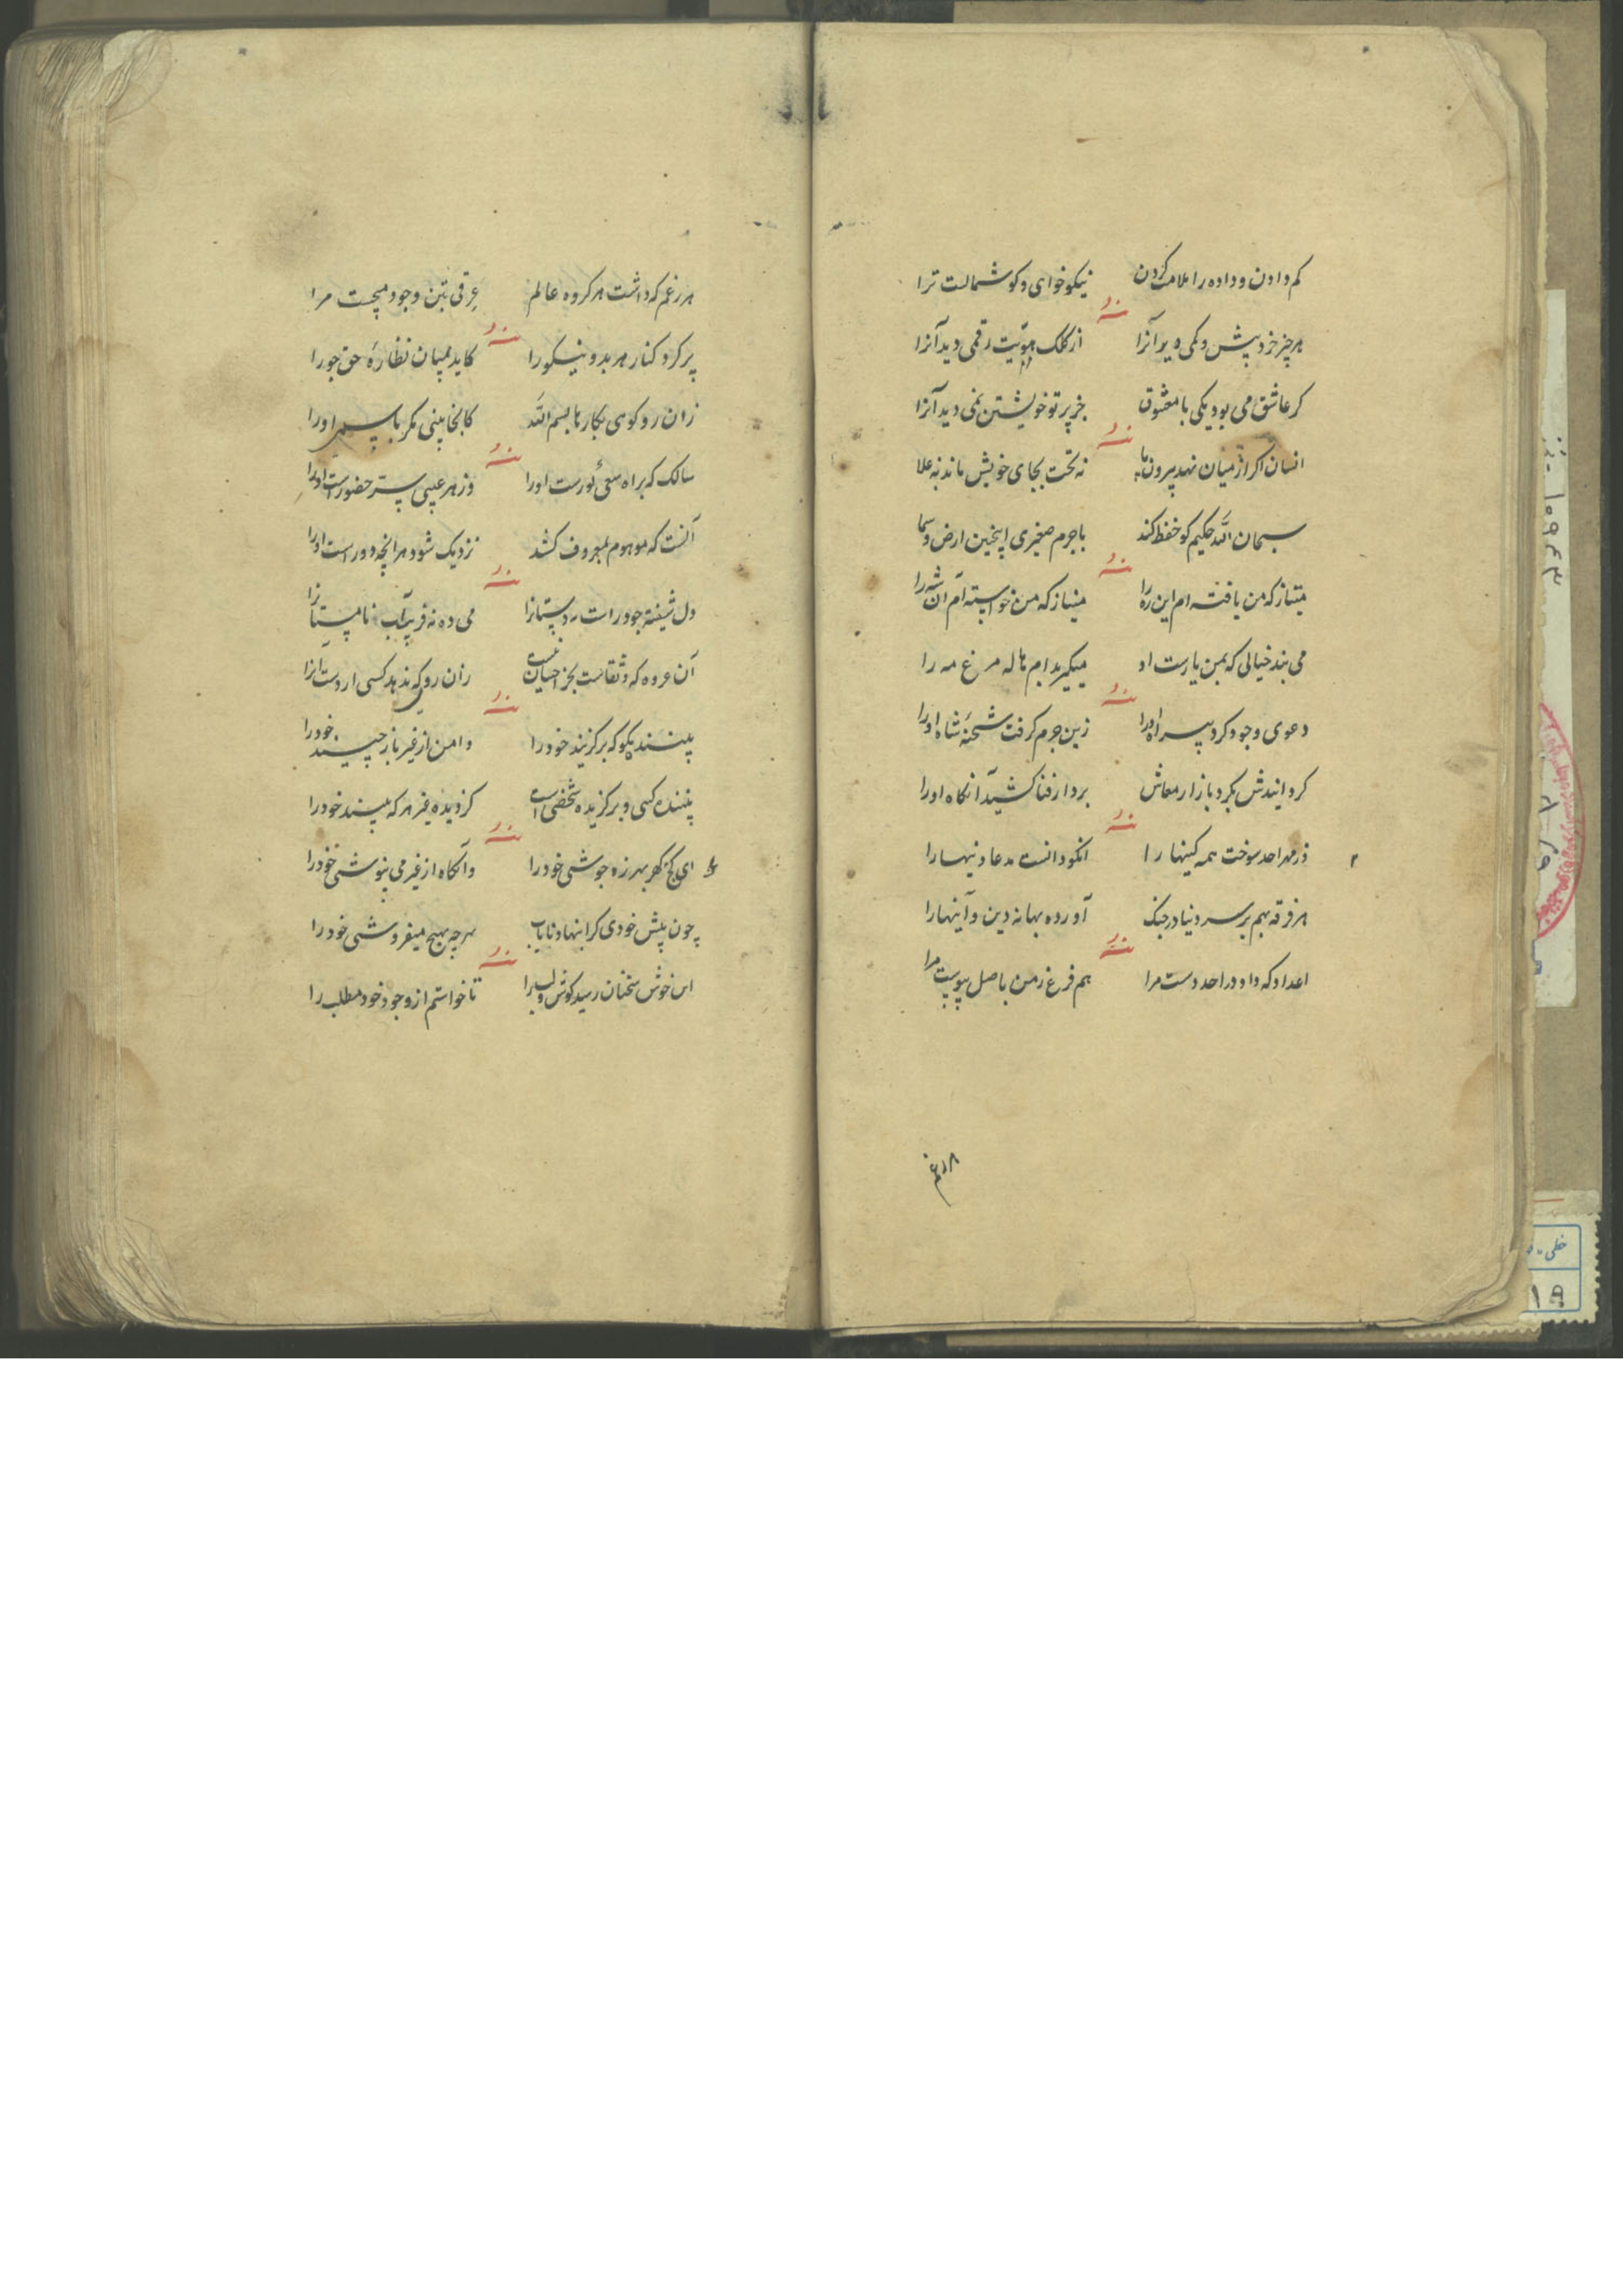 کم دادن و داده را ملامت کردن نیکو خوای و کو شمالت ترا
هر چیز خرد پیش و کمی دید آنرا از کلک هویت رقمی دید آنرا
کر عاشق می بود یکی با معشوق جز پرتو خویشتن نمی دید آنرا
انسان اکر از میان نهد بیرون پا نه تخت بجای خویش ماند نه علا
سبحان الله حکیم کو حفظ کند با جرم صغیری اینچنین ارض و سما
متناز که من یافته ام این ره را من خواسته ام آن شه را
می بندد خیالی که بمن یارست او میکیرد بدام هاله مرغ مه را
دعوی وجود کرد بیراه او را زین جرم کرفت شحنه شاه او را
کردانیدش بکرد بازار معاش بر دار فنا کشید آنکاه او را
در مهر احد سوخت همه کینها را انکو دانست مدعا دینها را
هر فرقه بهم بر سر دنیا در جنک آورده بهانه دین و آینها را
اعداد که داد در احد دست مرا هم فرغ زمن باصل پیوست مرا
۱۸
هر زغم که داشت هر کروه عالم عرقی بتن وجود میجست مرا
پر کرد کنار هر بد و نیکو را کاید بمیان نظارهٔ حق جو را
زان رو کوی بکارها بسم الله کانجا بینی مکر باسمی او را
سالک که براه سعی نورست او را وز هر غیبی سر حضورست او را
آنست که موهوم بمعروف کشد نزدیک شود هر آنچه دورست او را
دل شیفته جود راست می ده نه فریب آب
آن عروه که وثقاست بجز احسان نیست زان رو که ندهد کسی از دست آنرا
پسندیده بکو که برکزیند خود را دامن از غیر باز چیند خود را
کسی و برکزیده شخصی است کردیده غیر هر که بیند خود را
ای کنج کهر بهرزه جوشی خود را وانکاه از غیر می نیوشی خود را
چون پیش خودی کرانبها و نایاب هر چه بهیچ میفروشی خود را
این خوش سخنان رسید کوش و لب را تا خواستم از وجود خود مطلب را
۱۰۹۶۳
خطی